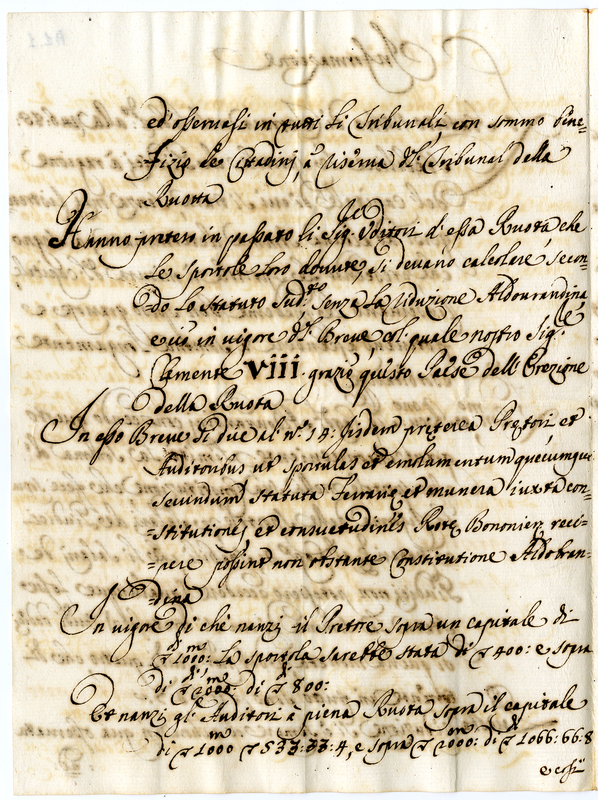 ed' osservasi in tutti li Tribunali con sommo bene=
fizio de Cittadini, à riserva del Tribunal della
Ruota
Hanno preteso in passato li Sig.ri Uditori d'essa Ruota, che
le sportole loro dovute, si devano calcolare secon=
do lo Statuto Sud.to senza la riduzione Aldobrandina
e ciò in vigore del Breve col quale nostro Sig.re
Clemente VIII. graziò questo Paese dell'Erezione
della Ruota
In esso Breve si dice al n.o 14: iisdem preterea Pretori et
Auditoribus ut sportulas et emolumentum quecumque
secundum Statuta Ferrarie et munera iuxta con=
=stitutiones et consuetudines Rote Bononien reci=
=pere possint non obstante Constitutione Aldobran=
=dina
In vigore di che nanzi il Pretore sopra un capitale di
1000: la sportola sarebbe stata di 400: e sopra
di 2000: di 800:
Et nanzi gl'Auditori à piena Ruota sopra il capitale
di 1000 533:33:4, e sopra 2000: di 1066:66:8
e così